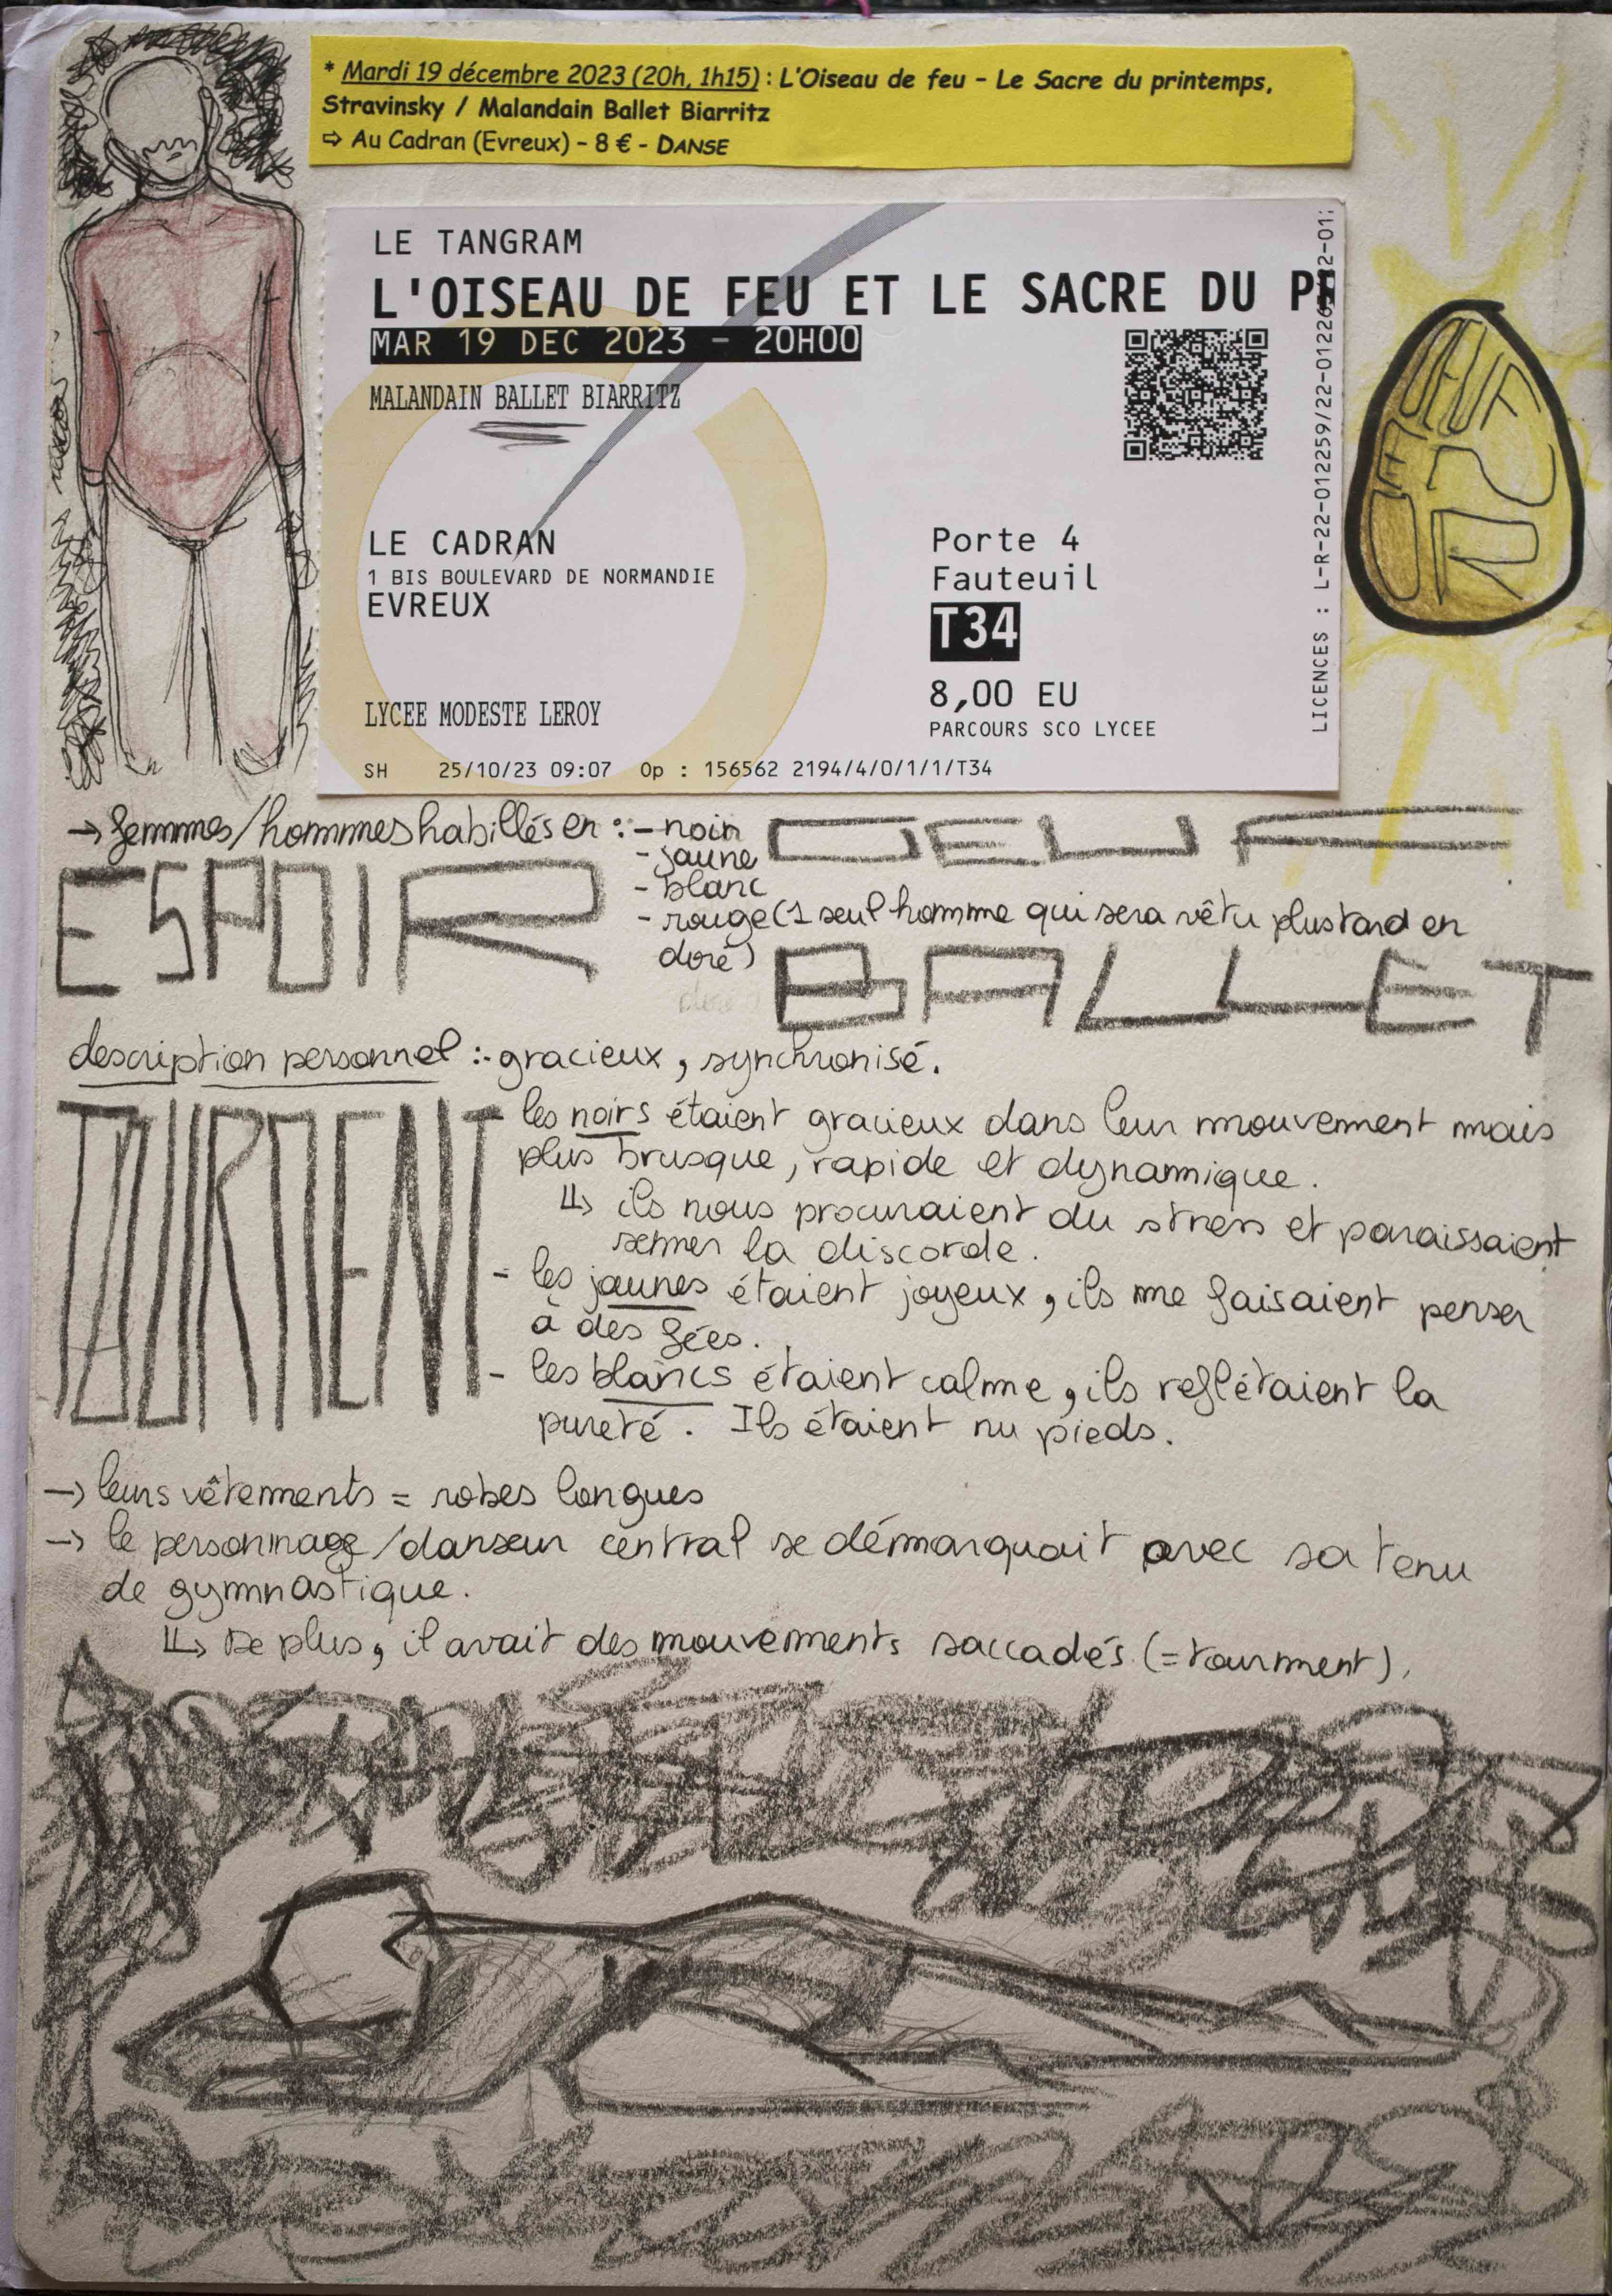 * Mardi 19 décembre 2023 (20h, 1h15) : L'Oiseau de feu - Le Sacre du printemps,
Stravinsky / Malandain Ballet Biarritz
⇨ Au Cadran (Evreux) - 8 € - DANSE
LE TANGRAM
L'OISEAU DE FEU ET LE SACRE DU PR
MAR 19 DEC 2023 - 20H00
MALANDAIN BALLET BIARRITZ
LE CADRAN
1 BIS BOULEVARD DE NORMANDIE
EVREUX
Porte 4
Fauteuil
T34
8,00 EU
PARCOURS SCO LYCEE
LYCEE MODESTE LEROY
SH 25/10/23 09:07 Op : 156562 2194/4/0/1/1/T34
LICENCES : L-R-22-012259/22-0122
OEUF
D
E
OR
→ femmes/hommes habillés en : - noir
- jaune
- blanc
- rouge (1 seul homme qui sera vêtu plus tard en
doré)
OEUF
ESPOIR
BALLET
description personnel : - gracieux, synchronisé.
TOURMENT
- les noirs étaient gracieux dans leur mouvement mais
plus brusque, rapide et dynamique.
↳ ils nous procuraient du stress et paraissaient
semer la discorde.
- les jaunes étaient joyeux, ils me faisaient penser
à des fées.
- les blancs étaient calme, ils reflétaient la
pureté. Ils étaient nu pieds.
→ leurs vêtements = robes longues
→ le personnage/danseur central se démarquait avec sa tenu
de gymnastique.
↳ De plus, il avait des mouvements saccadés (= tourment).